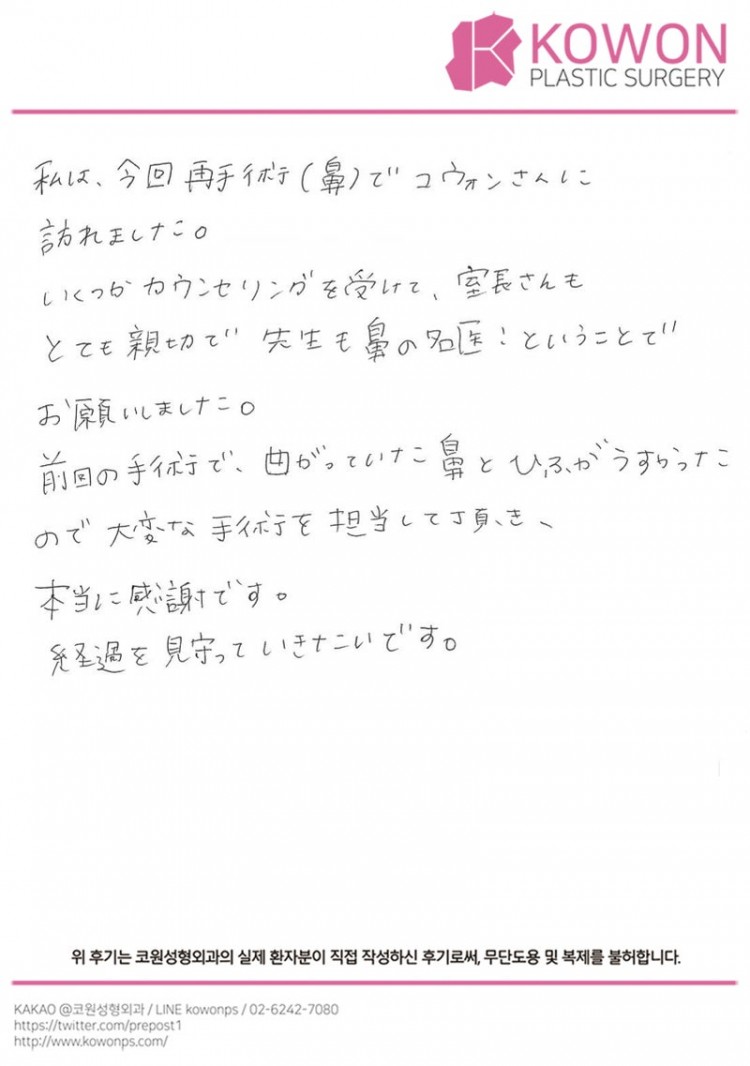 KOWON
PLASTIC SURGERY
私は、今回 再手術(鼻)で コウォンさんに
訪れました。
いくつか カウンセリングを受けて、室長さんも
とても親切で 先生も鼻の名医！ということで
お願いしました。
前回の手術で、曲がっていた鼻とひふがうすらった
ので 大変な手術を担当して頂き、
本当に感謝です。
経過を見守っていきたいです。
위 후기는 코원성형외과의 실제 환자분이 직접 작성하신 후기로써, 무단도용 및 복제를 불허합니다.
KAKAO @코원성형외과 / LINE kowonps / 02-6242-7080
https://twitter.com/prepost1
http://www.kowonps.com/